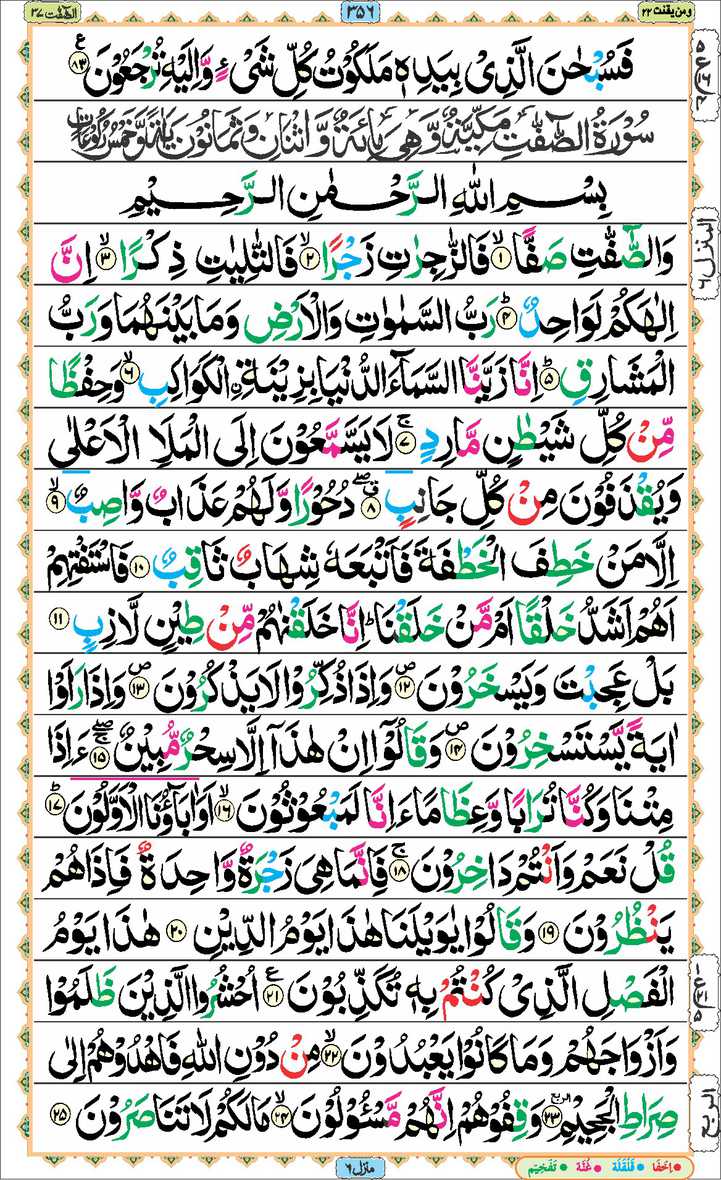 ومن يقنت ٢٣
٣٥٦
الصّٰٓفّٰت ٣٧
فَسُبْحٰنَ الَّذِیْ بِیَدِهٖ مَلَكُوْتُ كُلِّ شَیْءٍ وَّاِلَیْهِ تُرْجَعُوْنَ ۟۠ ﴿۸۳﴾ ع
سُوْرَةُ الصّٰٓفّٰتِ مَكِّیَّةٌ وَّهِیَ مِائَةٌ وَّاثْنَانِ وَثَمَانُوْنَ اٰیَةً وَّخَمْسُ رُكُوْعَاتٍ
بِسْمِ اللّٰهِ الرَّحْمٰنِ الرَّحِیْمِ
وَالصّٰٓفّٰتِ صَفًّا ۙ﴿۱﴾ فَالزّٰجِرٰتِ زَجْرًا ۙ﴿۲﴾ فَالتّٰلِیٰتِ ذِكْرًا ۙ﴿۳﴾ اِنَّ
اِلٰهَكُمْ لَوَاحِدٌ ؕ﴿۴﴾ رَبُّ السَّمٰوٰتِ وَالْاَرْضِ وَمَا بَیْنَهُمَا وَرَبُّ
الْمَشَارِقِ ؕ﴿۵﴾ اِنَّا زَیَّنَّا السَّمَآءَ الدُّنْیَا بِزِیْنَةِ ِ۟الْكَوَاكِبِ ۙ﴿۶﴾ وَحِفْظًا
مِّنْ كُلِّ شَیْطٰنٍ مَّارِدٍ ۚ﴿۷﴾ لَا یَسَّمَّعُوْنَ اِلَی الْمَلَاِ الْاَعْلٰی
وَیُقْذَفُوْنَ مِنْ كُلِّ جَانِبٍ ۖۗ﴿۸﴾ دُحُوْرًا وَّلَهُمْ عَذَابٌ وَّاصِبٌ ۙ﴿۹﴾
اِلَّا مَنْ خَطِفَ الْخَطْفَةَ فَاَتْبَعَهٗ شِهَابٌ ثَاقِبٌ ﴿۱۰﴾ فَاسْتَفْتِهِمْ
اَهُمْ اَشَدُّ خَلْقًا اَمْ مَّنْ خَلَقْنَا ؕ اِنَّا خَلَقْنٰهُمْ مِّنْ طِیْنٍ لَّازِبٍ ﴿۱۱﴾
بَلْ عَجِبْتَ وَیَسْخَرُوْنَ ۪﴿۱۲﴾ وَاِذَا ذُكِّرُوْا لَا یَذْكُرُوْنَ ۪﴿۱۳﴾ وَاِذَا رَاَوْا
اٰیَةً یَّسْتَسْخِرُوْنَ ۪﴿۱۴﴾ وَقَالُوْۤا اِنْ هٰذَاۤ اِلَّا سِحْرٌ مُّبِیْنٌ ۚۖ﴿۱۵﴾ ءَاِذَا
مِتْنَا وَكُنَّا تُرَابًا وَّعِظَامًا ءَاِنَّا لَمَبْعُوْثُوْنَ ۙ﴿۱۶﴾ اَوَاٰبَآؤُنَا الْاَوَّلُوْنَ ؕ﴿۱۷﴾
قُلْ نَعَمْ وَاَنْتُمْ دَاخِرُوْنَ ۚ﴿۱۸﴾ فَاِنَّمَا هِیَ زَجْرَةٌ وَّاحِدَةٌ فَاِذَا هُمْ
یَنْظُرُوْنَ ﴿۱۹﴾ وَقَالُوْا یٰوَیْلَنَا هٰذَا یَوْمُ الدِّیْنِ ﴿۲۰﴾ هٰذَا یَوْمُ
الْفَصْلِ الَّذِیْ كُنْتُمْ بِهٖ تُكَذِّبُوْنَ ﴿۲۱﴾ ع اُحْشُرُوا الَّذِیْنَ ظَلَمُوْا
وَاَزْوَاجَهُمْ وَمَا كَانُوْا یَعْبُدُوْنَ ۙ﴿۲۲﴾ مِنْ دُوْنِ اللّٰهِ فَاهْدُوْهُمْ اِلٰی
صِرَاطِ الْجَحِیْمِ ﴿۲۳﴾ الربع وَقِفُوْهُمْ اِنَّهُمْ مَّسْـُٔوْلُوْنَ ۙ﴿۲۴﴾ مَا لَكُمْ لَا تَنَاصَرُوْنَ ﴿۲۵﴾
المنزل ٦
الربع
منزل ٦
اِخفَا • قَلْقَلَة • غُنَّه • تَفْخِیْم •